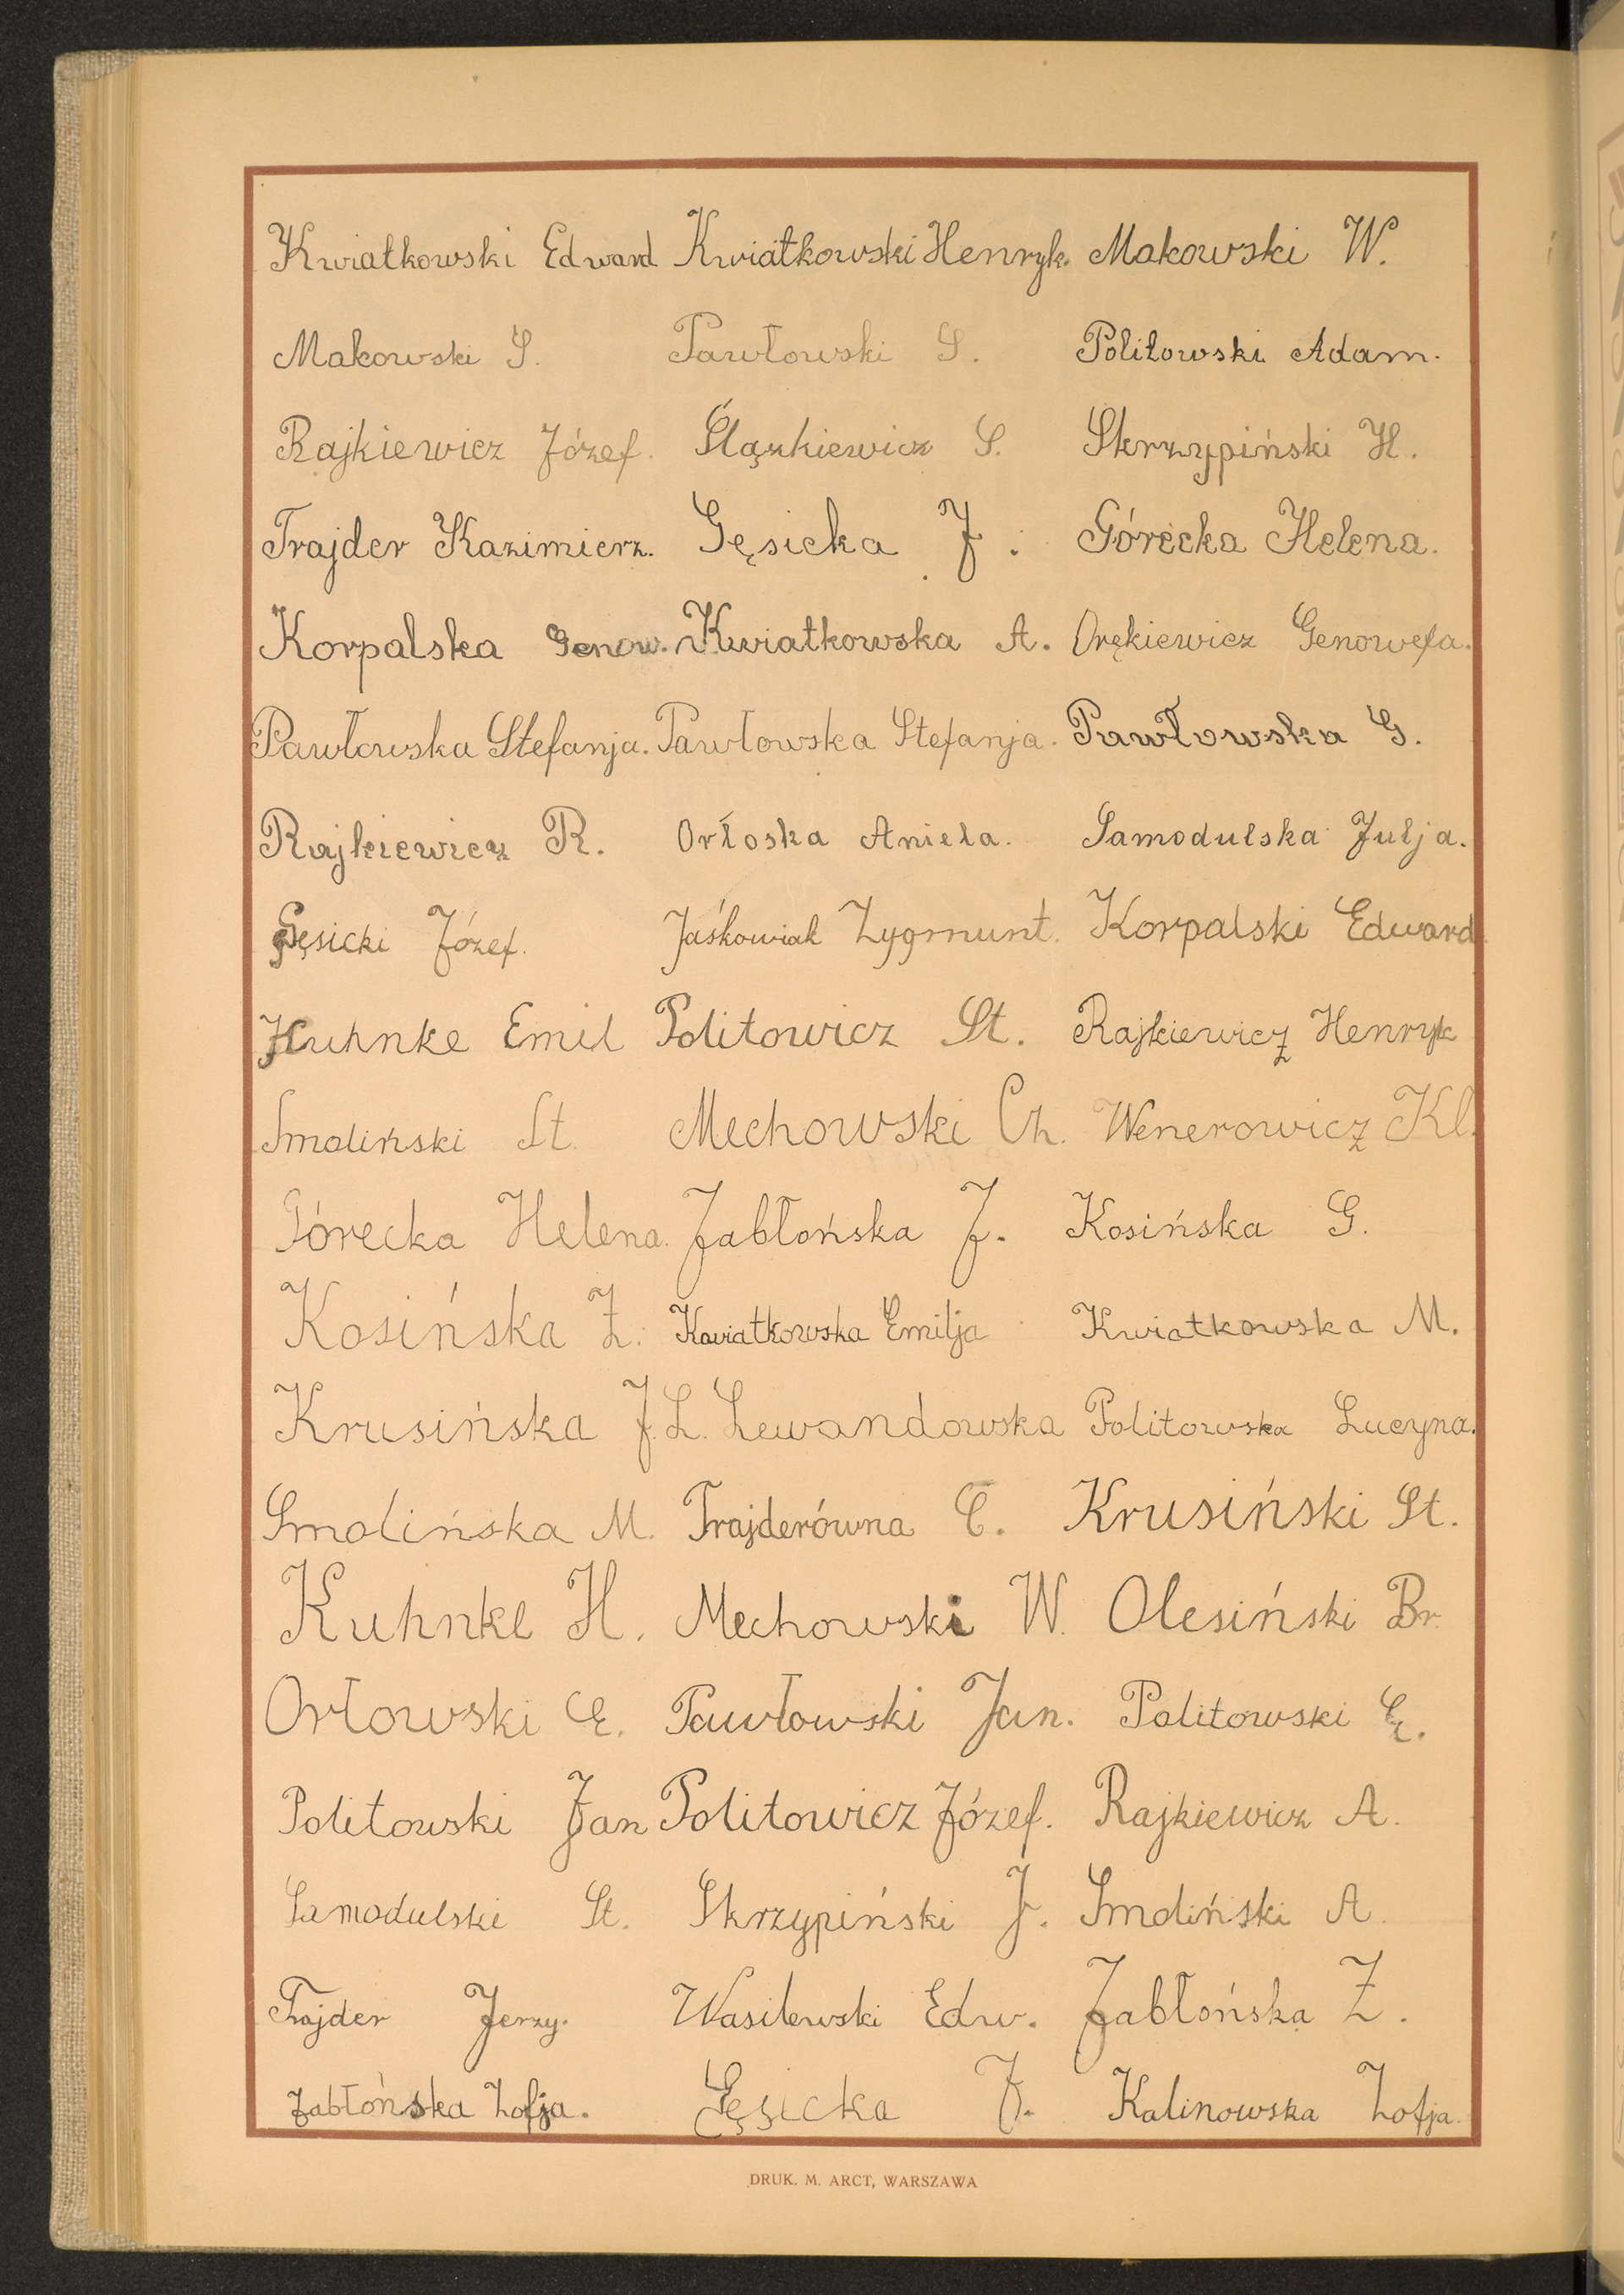 Kwiatkowski Edward Kwiatkowski Henryk. Makowski W.
Makowski S. Pawłowski S. Politowski Adam.
Rajkiewicz Józef. Ślązkiewicz S. Skrzypiński H.
Trajder Kazimierz. Gęsicka J. Górecka Helena.
Korpalska Genow. Kwiatkowska A. Orękiewicz Genowefa.
Pawłowska Stefanja. Pawłowska Stefanja. Pawłowska G.
Rajkiewicz R. Orłoska Aniela. Samodulska Julja.
Gęsicki Józef. Jaśkowiak Zygmunt. Korpalski Edward.
Kuhnke Emil Politowicz St. Rajkiewicz Henryk
Smoliński St. Mechowski Ch. Wenerowicz Kl.
Górecka Helena. Jabłońska J. Kosińska G.
Kosińska Z. Kwiatkowska Emilja Kwiatkowska M.
Krusińska J. L. Lewandowska Politowska Lucyna.
Smolińska M. Trajderówna C. Krusiński St.
Kuhnke H. Mechowski W. Olesiński Br.
Orłowski E. Pawłowski Jan. Politowski
Politowski Jan Politowicz Józef. Rajkiewicz A.
Samodulski St. Skrzypiński J. Smoliński A.
Trajder Jerzy. Wasilewski Edw. Jabłońska Z.
Jabłońska Zofja. Gęsicka J. Kalinowska Zofja.
DRUK. M. ARCT, WARSZAWA